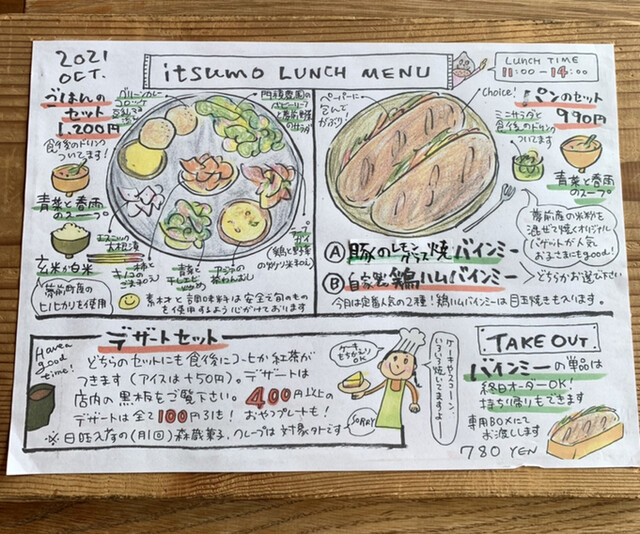 2021
OCT.
itsumo LUNCH MENU
LUNCH TIME
11:00-14:00
ごはんの
セット
1,200円
食後のドリンク
ついてます!
青菜と春雨
のスープ
玄米か白米
ヒノヒカリを使用
グリーンカレー
コロッケ
豆乳マヨ
ソース
門積農園の
ベビーリーフ
と夢前野菜
のサラダ
エスニック
大根漬
柿と
キノコの
ごま和え
青菜と
干しエビ
炒め
アジアの
茶わんむし
(鶏と野菜
のサラリ米和え)
素材と調味料は安全で旬のもの
を使用するよう心がけております
ペーパーに
包んで
がぶり!
choice!
パンのセット
990円
ミニサラダと
食後のドリンク
ついてます
青菜と春雨
のスープ
夢前産の米粉を
混ぜて焼くオリジナル
バゲットが人気
おまさにもgood!
Ⓐ 豚のレモングラス焼バインミー
Ⓑ 自家製鶏ハムバインミー
どちらかお選び下さい
今月は定番人気の2種!鶏ハムバインミーは目玉焼きも入ります。
Have a
good
time!
デザートセット
どちらのセットにも食後にコーヒーか紅茶が
つきます(アイスは+50円)。デザートは
店内の黒板をご覧下さい。400円以上の
デザートは全て100円引き!おやつプレートも!
※日時入荷の(月1回)森蔵菓子、クレープは対象外です
SORRY
ケーキ
もちかえり
OK
ケーキやスコーン、
いろいろ焼いてますよー
TAKE OUT
バインミーの単品は
終日オーダーOK!
持ち帰りもできます
専用BOXにて
お渡しします
780 YEN